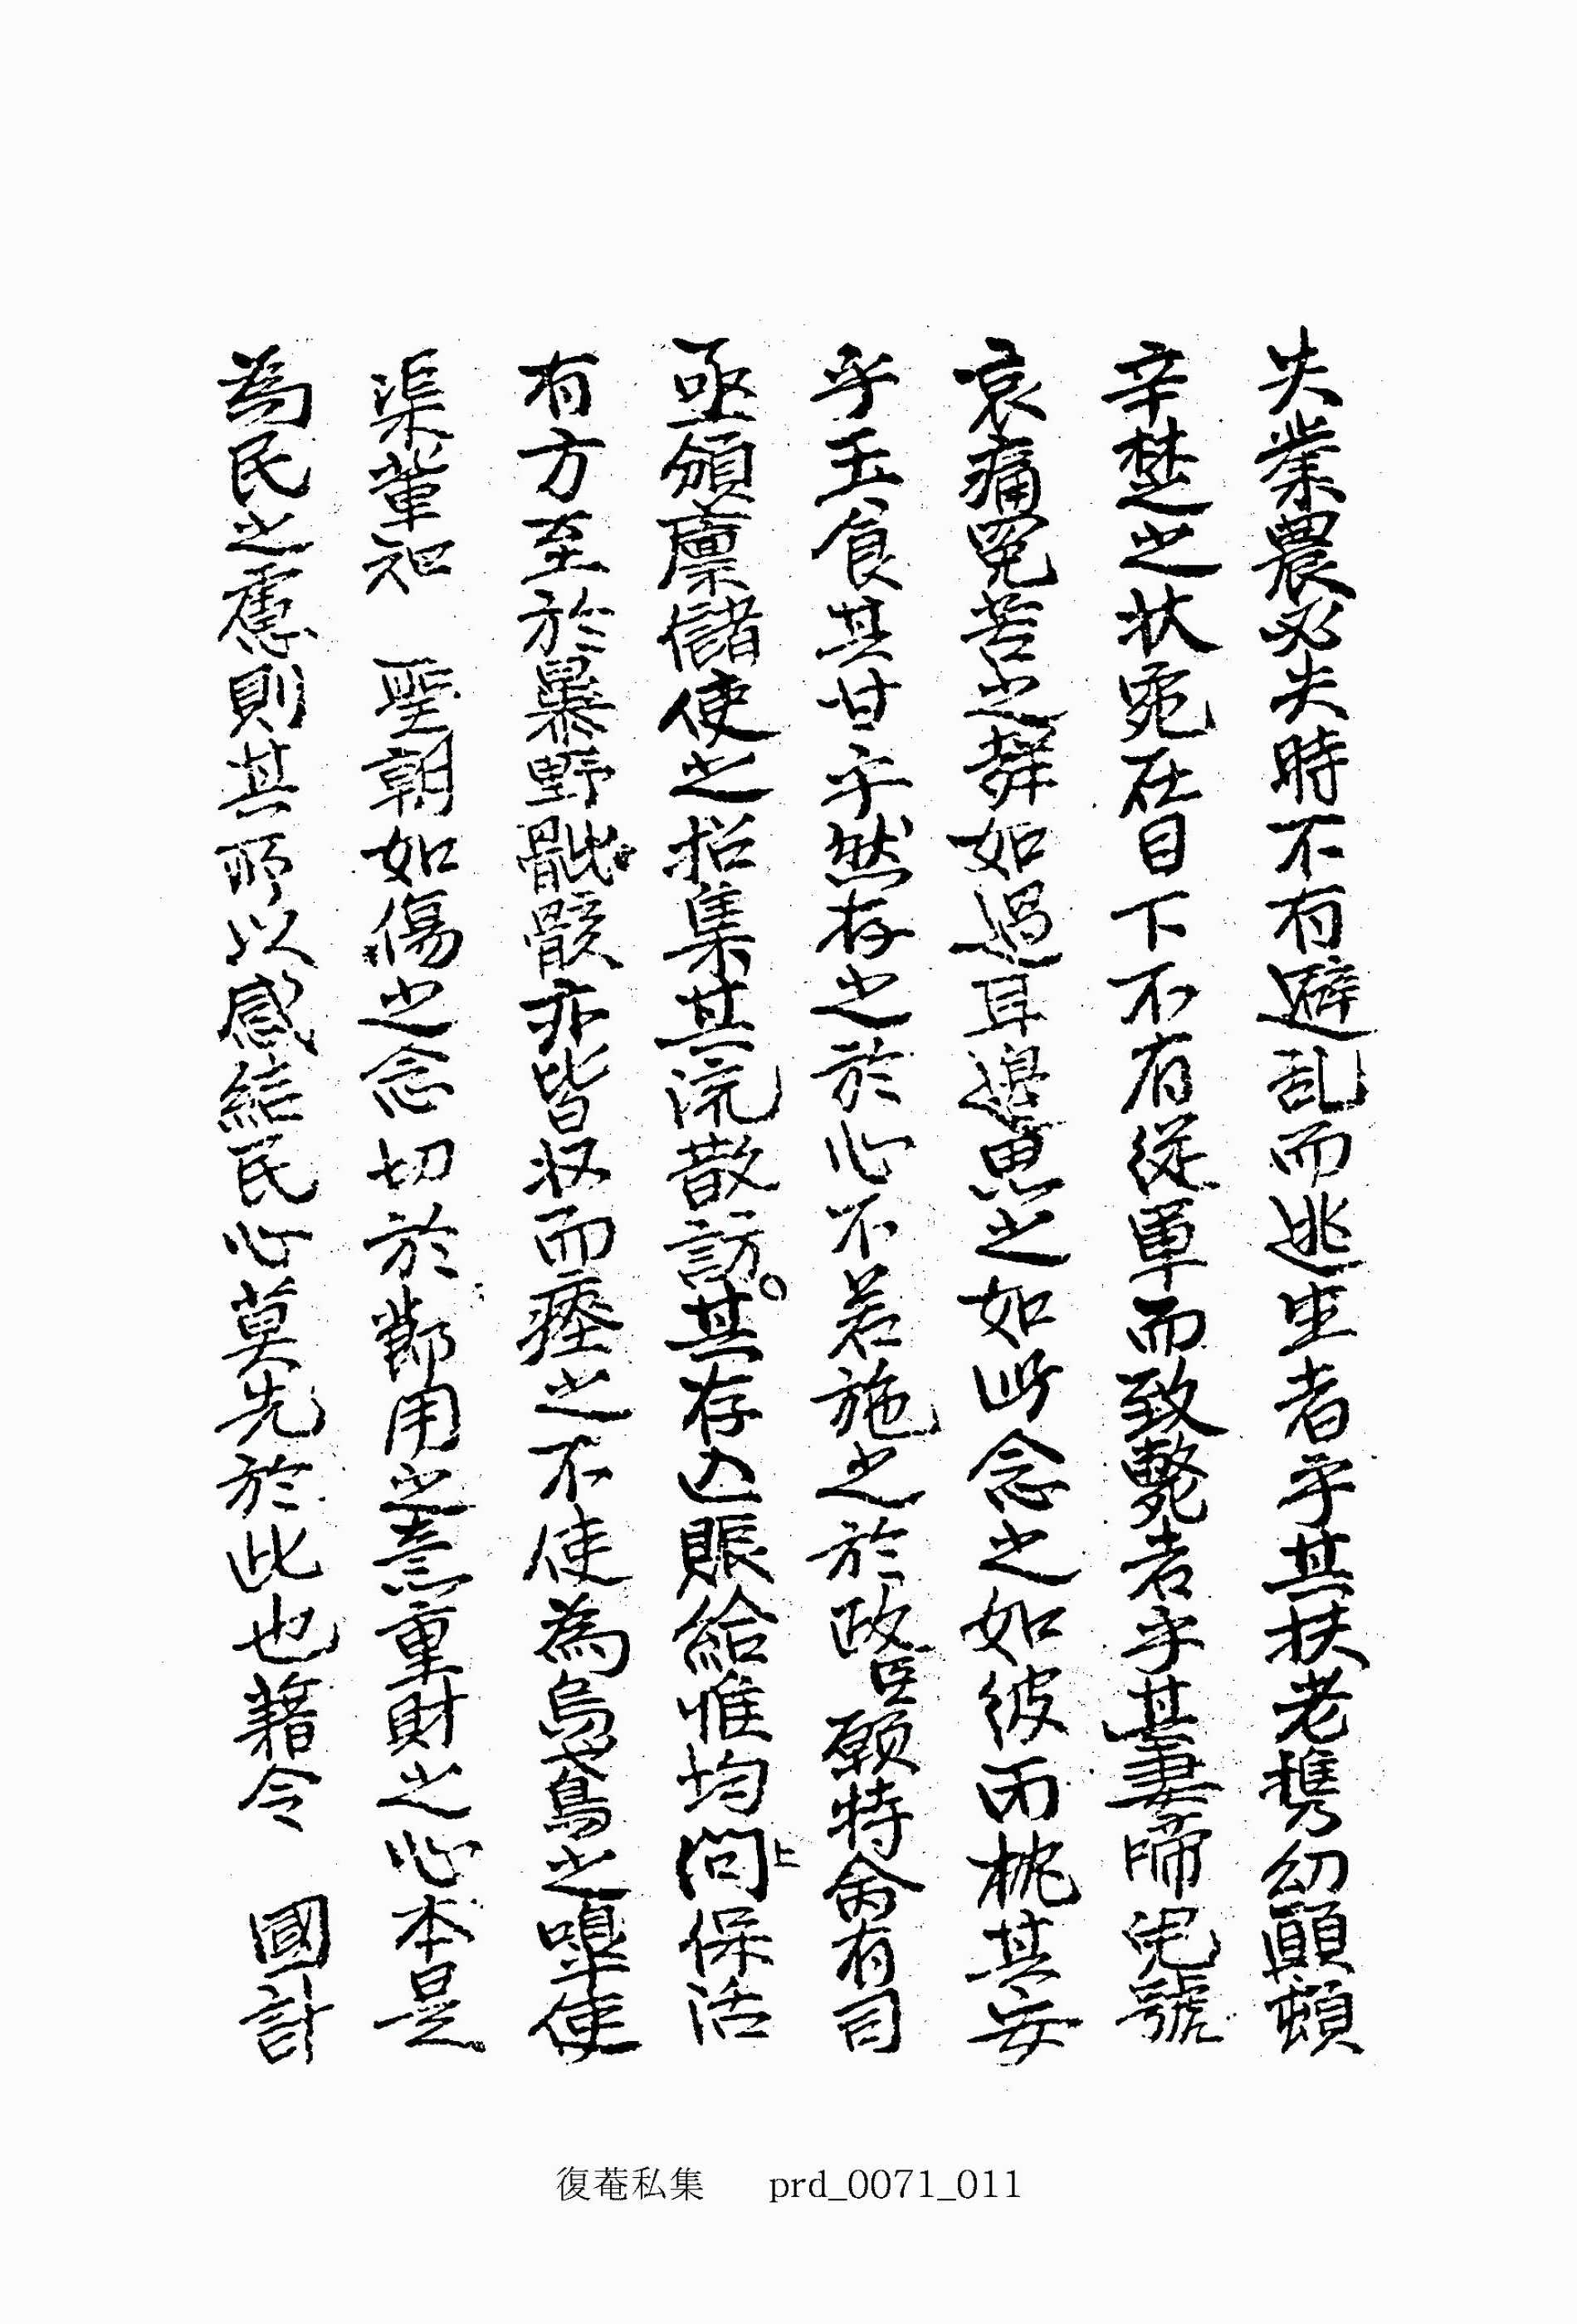 失業農必失時不有避乱而逃生者乎其扶老携幼顚頓
辛楚之状宛在目下不有從軍而致斃者乎其妻啼児號
哀痛冤苦之聲如過耳邊思之如此念之如彼而枕其安
乎玉食其甘乎然存之於心不若施之於政臣願特命有司
亟頒廩儲使之招集其流散訪其存亡賑給惟均問保活
上
有方至於暴野骴骸亦皆収而瘞之不使為烏鳶之嘬使
渠軰知 聖朝如傷之念切於節用之意重財之心本是
為民之慮則其所以感結民心莫先於此也藉令 國計
復菴私集 prd_0071_011